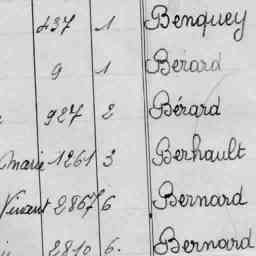 437 1 Benquey
9 1 Bérard
927 2 Bérard
Marie 1261 3 Berhault
Vincent 2867 6 Bernard
2810 6. Bernard